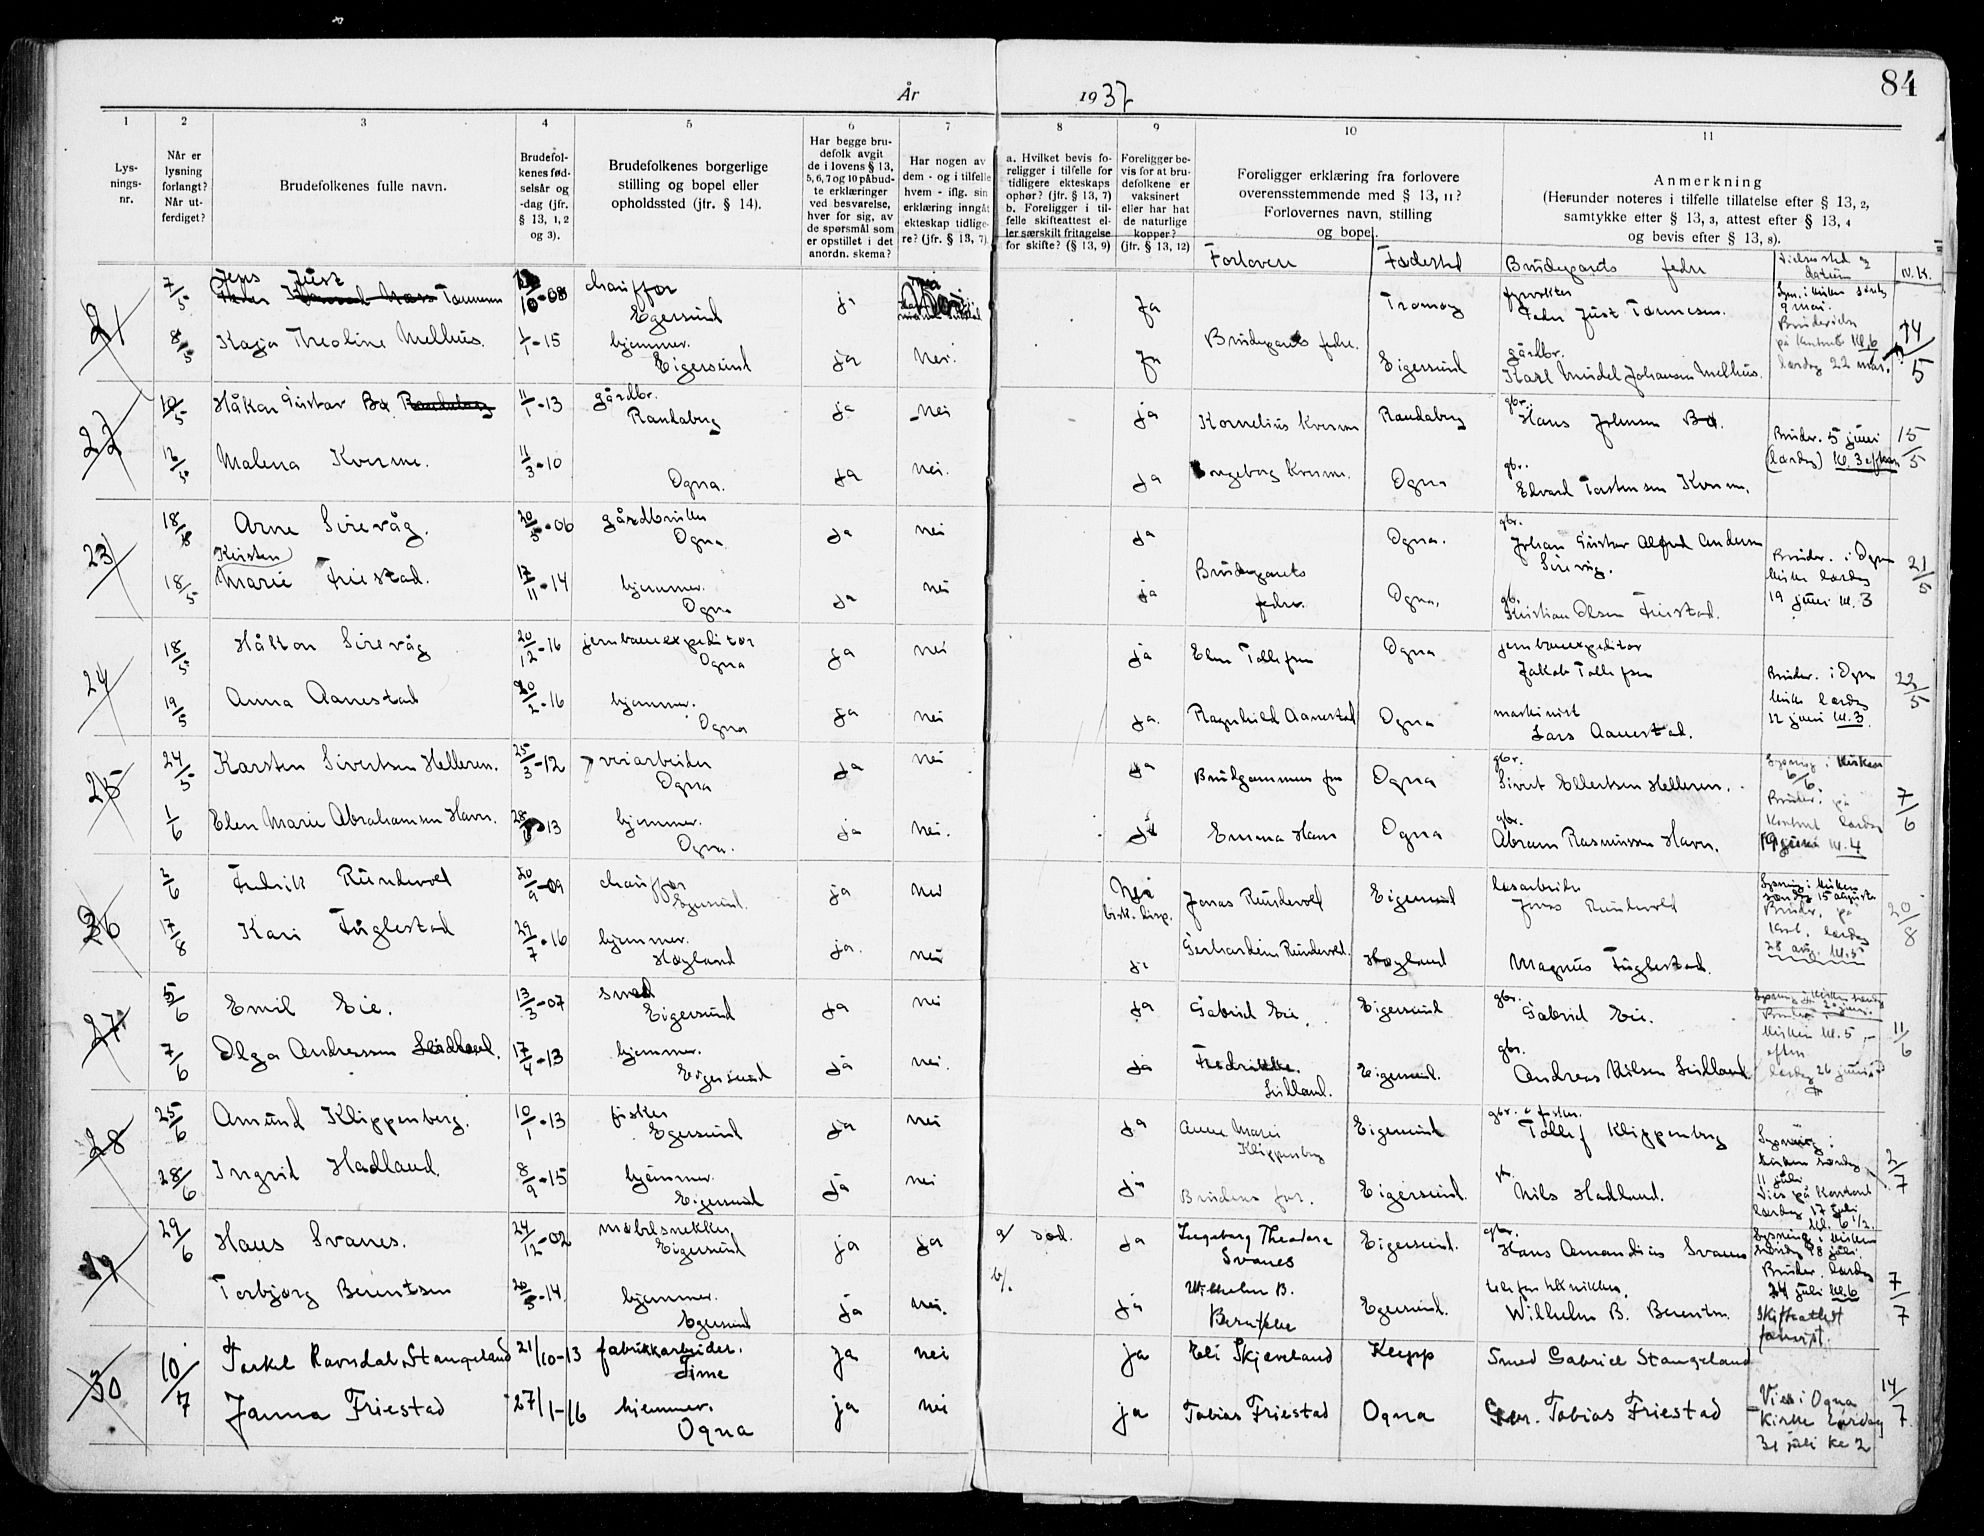 84
År 1937
1 2 3 4 5 6 7 8 9 10 11
Lys-
nings-
nr.
Når er
lysning
forlangt?
Når ut-
ferdiget?
Brudefolkenes fulle navn.
Brudefol-
kenes fød-
selsår og
-dag (jfr.
§ 13, 1, 2
og 3).
Brudefolkenes borgerlige
stilling og bopel eller
opholdssted (jfr. § 14).
Har begge bru-
defolk avgit
de i lovens § 13,
5, 6, 7 og 10 påbud-
te erklæringer
ved besvarelse,
hver for sig, av
de spørsmål som
er opstillet i det
anordn. skema?
Har nogen av
dem - og i tilfelle
hvem - iflg. sin
erklæring inngåt
ekteskap tidlige-
re? (jfr. § 13, 7)
a. Hvilket bevis fo-
religger i tilfelle for
tidligere ekteskaps
ophør? (jfr. § 13, 7)
b. Foreligger i til-
felle skifteattest el-
ler særskilt fritagelse
for skifte? (§ 13, 9)
Foreligger be-
vis for at bru-
defolkene er
vaksinert
eller har hat
de naturlige
kopper?
(jfr. § 13, 12)
Foreligger erklæring fra forlovere
overensstemmende med § 13, 11?
Forlovernes navn, stilling
og bopel.
Anmerkning
(Herunder noteres i tilfelle tillatelse efter § 13, 2,
samtykke efter § 13, 3, attest efter § 13, 4
og bevis efter § 13, 8).
Forlovere Fødested Brudeparets fedre Vielsessted og
datum
21 7/5 Jens Just Tønnessen 10-08 chauffør Egersund ja ja Tromøy Peder Just Tønnesen.
8/5 Kaja Theoline Melhus. 1/1-15 hjemmev. Eigersund ja nei. ja Brudeparets fedre. Eigersund gårdbr. Karl Mindel Johansen Melhus. lørdag 22 mai. 14/5
22 10/5 Håkon Gustav Bø 11/1-13 gårdbr. Randaberg ja nei ja Kornelius Kverme Randaberg gbr. Hans Johnsen Bø. Brudev. 5 juni 15/5
12/5 Malena Kverme. 11/3-10 Ogna. ja nei. ja Ingeborg Kverme. Ogna gbr. Edvard Torstensen Kverme. (lørdag) kl. 3
23 18/5 Arne Sirevåg. 20/5-06 gårdbruker Ogna ja nei ja Ogna. gbr. Johan Gustav Alfred Andersen Sirevåg. Brudev. i Ogna 21/5
18/5 Kirsten Marie Friestad. 17/11-14 hjemmev. Ogna ja nei ja Brudeparets fedre. Ogna. gb. Kristian Olsen Friestad. kirke lørdag 19 juni kl. 3
24 18/5 Håkon Sirevåg 20/12-16 jernbaneexpeditør Ogna ja nei ja Elen Tollefsen Ogna jernbaneexpeditør Jakob Tollefsen Brudev. i Ogna 22/5
19/5 Anna Aanestad 20/2-16 hjemmev. Ogna ja nei ja. Ragnhild Aanestad Ogna maskinist Lars Aanestad. kirke lørdag 12 juni kl. 3
25 24/5 Karsten Sivertsen Helleren. 25/3-12 veiarbeider Ogna ja nei ja Brudgommens far Ogna gbr. Sivert Ellertsen Helleren. Lysning i kirken 6/6. 7/6
1/6 Elen Marie Abrahamsen Havn. 28-13 hjemmev. Ogna. ja nei. ja Emma Havn Ogna gbr. Abram Rasmussen Havn. Brudev. på kontoret lørdag 19 juni kl. 4
26 2/6 Fredrik Rundevold 20/9-09 chauffør Egersund. ja nei Nei bisk. disp. Jonas Rundevold Eigersund Jonas Rundevold Lysning i kirken søndag 15 august 20/8
17/8 Kari Fuglestad 29/7-16 hjemmev. Høyland ja. nei ja Gerhardine Rundevold. Høyland Magnus Fuglestad. Brudev. på kont. lørdag 28 aug. kl. 5
27 5/6 Emil Eie. 13/3-07 smed Eigersund ja nei ja Gabriel Eie. Eigersund gbr. Gabriel Eie. 11/6
7/6 Olga Andreassen 17/4-13 hjemmev. Eigersund ja nei. ja Eigersund. gbr. Andreas Nilsen lørdag 26 juni
28 25/6 Amund Klippenberg. 10/1-13 fisker Egersund ja nei ja Anne Marie Klippenberg Eigersund gbr. & fisker. Tollef Klippenberg Lysning i kirken søndag 11 juli 2/7
28/6 Ingrid Hadland. 8/9-15 hjemmev. Eigersund ja nei ja Brudens far. Eigersund. gb. Nils Hadland. Vies på kontoret lørdag 17 juli kl. 6 1/2.
29 29/6 Hans Svanes. 24/12-02 møbelsnekker Eigersund ja ja a/ død. ja Ingeborg Theodora Svanes Eigersund. gbr. Hans Amandius Svanes Lysning i kirken søndag 18 juli.
Torbjørg Berentsen 20-14. hjemmev. Egersund ja nei. b/. ja Wilhelm B. Egersund. Wilhelm B. Berentsen. Brudev. lørdag 24 juli kl. 6 Skifteattest forevist. 7/7
30 10/7 Torkel Ravndal Stangeland 21/10-13 fabrikkarbeider. Time ja nei ja Eli Skjæveland Klepp Smed Gabriel Stangeland 14/7
Janna Friestad 27/1-16 hjemmev. Ogna ja nei ja Tobias Friestad Ogna Gbr. Tobias Friestad Vies i Ogna kirke lørdag 31 juli kl 2